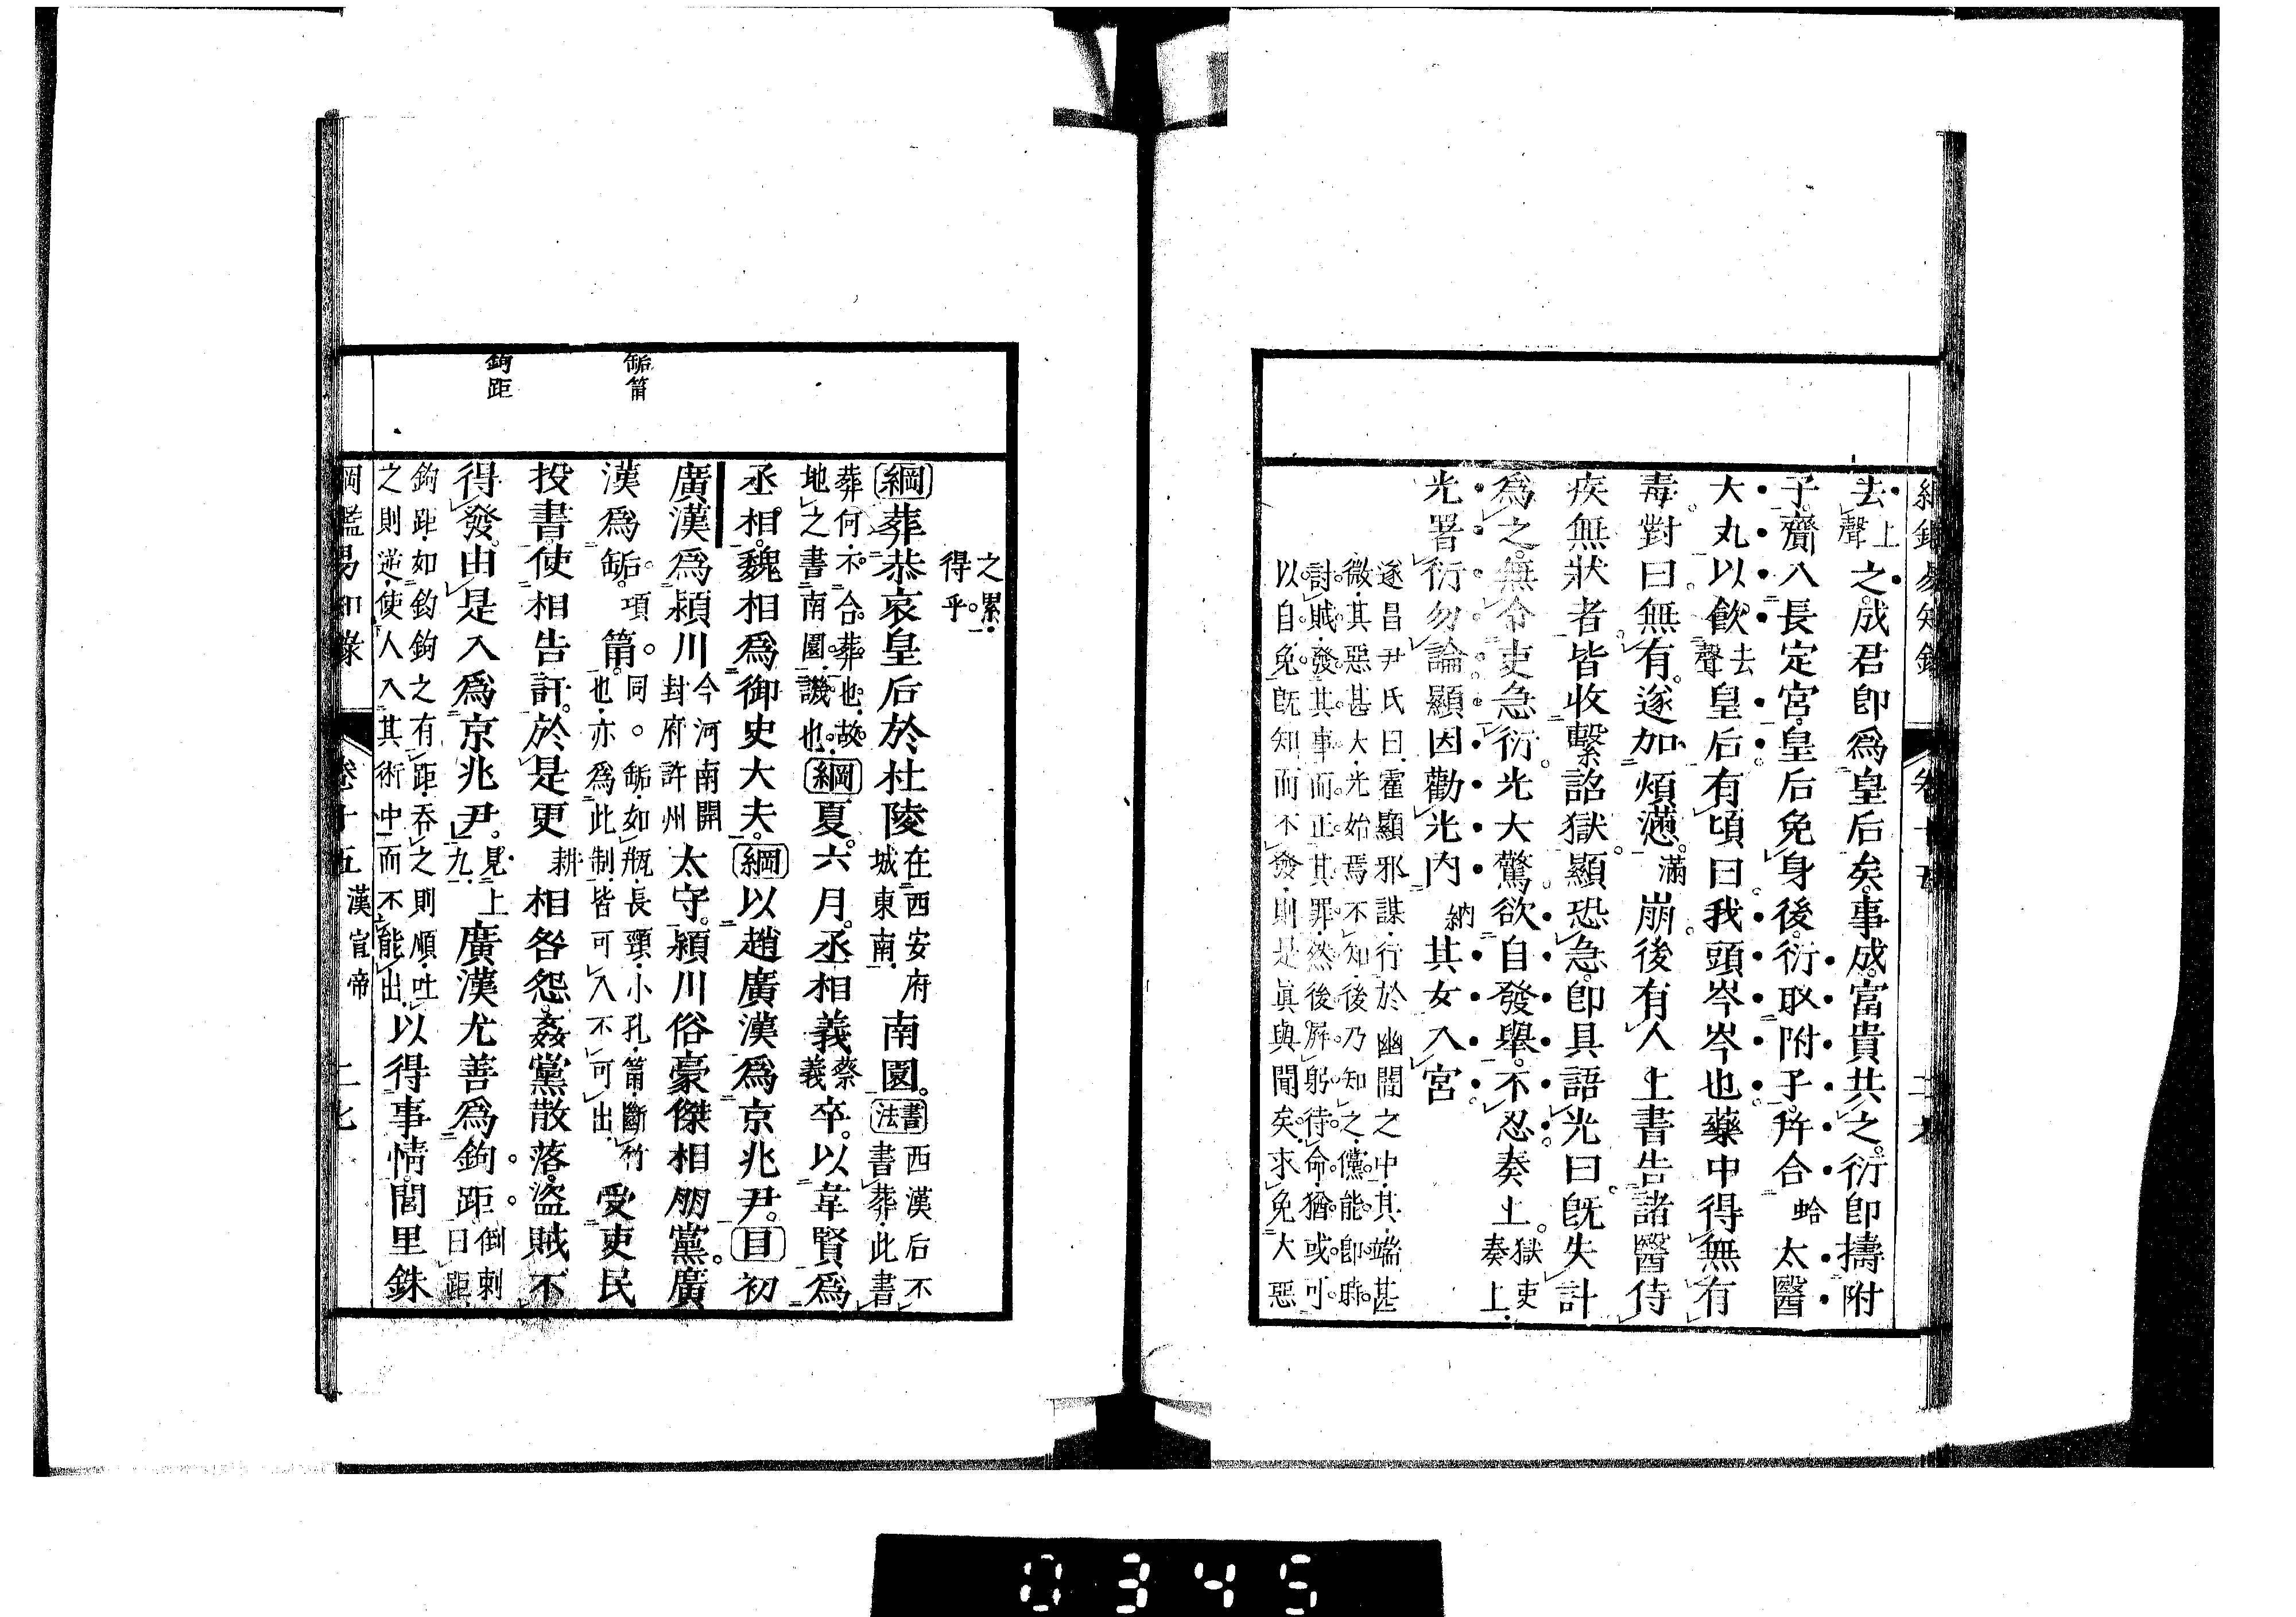 綱鑑易知錄 卷十五
去上聲之成君卽爲皇后矣事成富貴共之衍卽擣附
子齎入長定宮皇后免身後衍取附子幷合蛤太醫
大丸以飮去聲皇后有頃曰我頭岑岑也藥中得無有
毒對曰無有遂加煩懣滿崩後有人上書告諸醫侍
疾無狀者皆收繫詔獄顯恐急卽具語光曰旣失計
爲之無令吏急衍光大驚欲自發舉不忍奏上獄吏奏上
光署衍勿論顯因勸光內納其女入宮
遂昌尹氏曰霍顯邪謀行於幽闇之中其端甚
微其惡甚大光始焉不知後乃知之儻能卽時
討賊發其事而正其罪然後屛躬待命猶或可
以自免旣知而不發則是眞與聞矣求免大惡
之累
得乎
綱葬恭哀皇后於杜陵在西安府城東南南園書法西漢后不書葬此書
葬何不合葬也故地之書南園譏也綱夏六月丞相義蔡義卒以韋賢爲
丞相魏相爲御史大夫綱以趙廣漢爲京兆尹目初
廣漢爲潁川今河南開封府許州太守潁川俗豪傑相朋黨廣
漢爲缿項筩同缿如甁長頸小孔筩斷竹也亦爲此制皆可入不可出受吏民
投書使相告訐於是更耕相咎怨姦黨散落盜賊不
得發由是入爲京兆尹見上九廣漢尤善爲鉤距倒刺曰距
鉤距如鉤鉤之有距吞之則順吐之則逆使人入其術中而不能出以得事情閭里銖
綱鑑易知錄 卷十五 漢宣帝 二七
缿筩
鉤距
0345